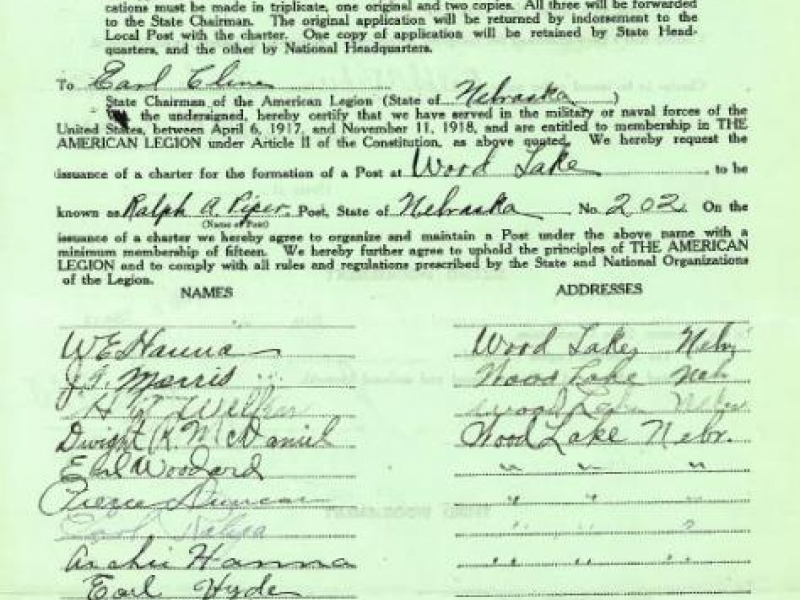 cations must be made in triplicate, one original and two copies. All three will be forwarded
to the State Chairman. The original application will be returned by indorsement to the
Local Post with the charter. One copy of application will be retained by State Head-
quarters, and the other by National Headquarters.
To Earl Cline
State Chairman of the American Legion (State of Nebraska)
We the undersigned, hereby certify that we have served in the military or naval forces of the
United States, between April 6, 1917, and November 11, 1918, and are entitled to membership in THE
AMERICAN LEGION under Article II of the Constitution, as above quoted. We hereby request the
issuance of a charter for the formation of a Post at Wood Lake to be
known as Ralph A. Piper Post, State of Nebraska No. 202. On the
(Name of Post)
issuance of a charter we hereby agree to organize and maintain a Post under the above name with a
minimum membership of fifteen. We hereby further agree to uphold the principles of THE AMERICAN
LEGION and to comply with all rules and regulations prescribed by the State and National Organizations
of the Legion.
NAMES ADDRESSES
W E Hanna Wood Lake, Nebr
J. F. Morris Wood Lake Neb
Wood Lake Nebr
Dwight K. McDaniel Wood Lake Nebr.
Earl Woodard " " "
Pierce Duncan " " "
Earl " " "
Archie Hanna " " "
Earl Hyde